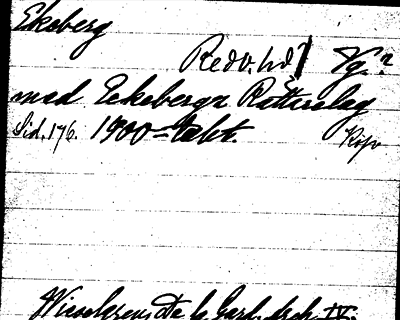 Ekeberg
Redv. hd Vg?
med Eckeberga Rättarelag
Sid. 176. 1900-talet. Kop
Wieselgren, De la Gard. Arch. IV: